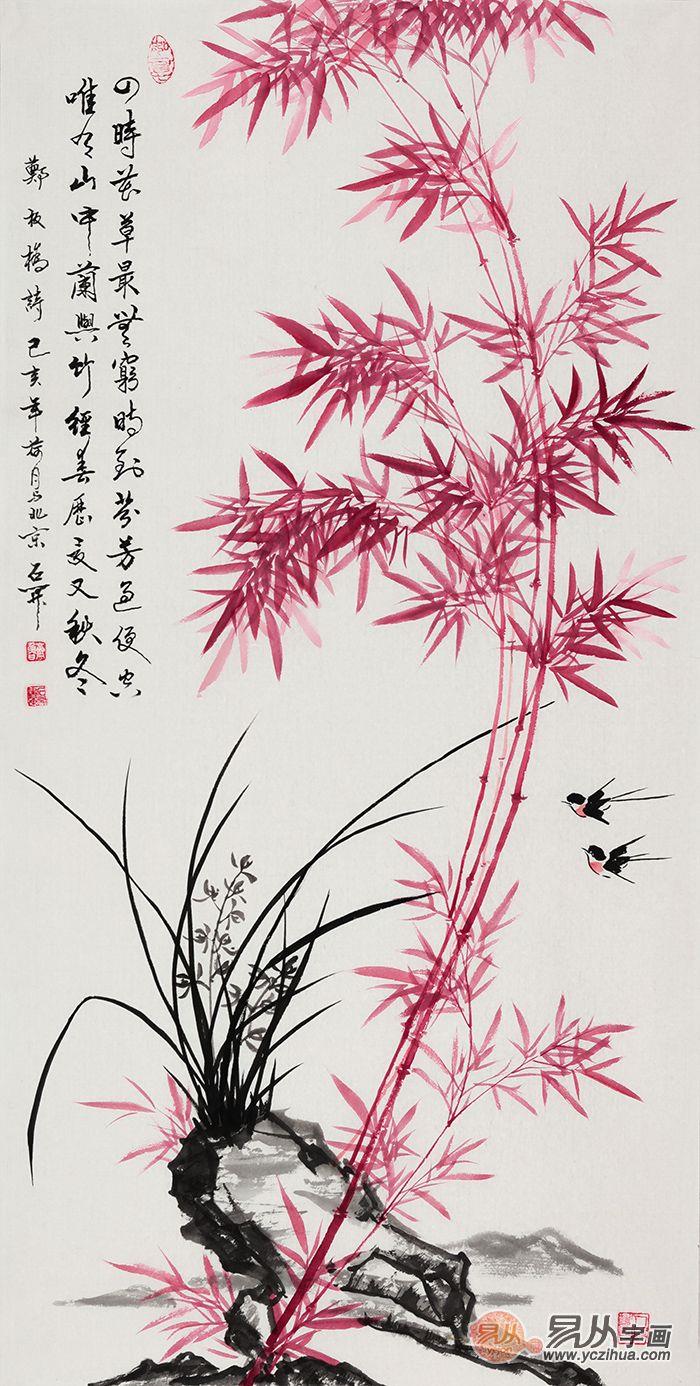 四時花草最無窮時到芬芳過便空
唯有山中蘭與竹經春歷夏又秋冬
鄭板橋詩己亥年荷月於北京石開
易从字画
www.yczihua.com